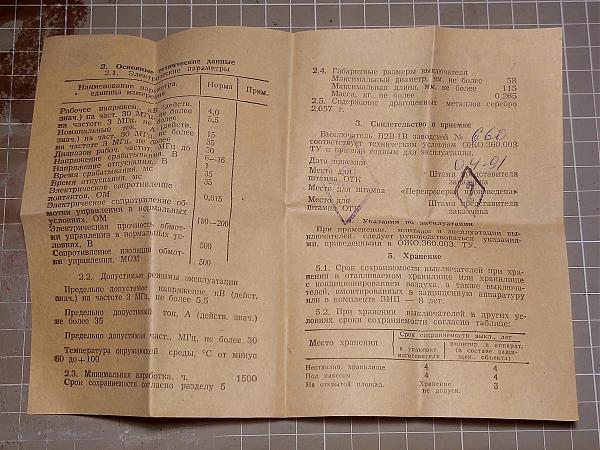 2. Основные технические данные
2.1. Электрические параметры
Наименование параметра, единица измерения
Норма
Прим.
Рабочее напряжен., кВ (действ.
знач.) на част. 30 МГц, не более 4,0
на частоте 3 МГц, не более 5,5
Номинальный ток, А (действ.
знач.) на част. 30 МГц, не более 15
на частоте 3 МГц, не более 35
Диапазон рабоч. частот, МГц до 30
Напряжение срабатывания, В 6—16
Напряжение отпускания, В 1
Время срабатывания, мс 35
Время отпускания, мс 35
Электрическое сопротивление
контактов, ОМ 0,015
Электрическое сопротивление об-
мотки управления в нормальных
условиях, ОМ 180—200
Электрическая прочность обмот-
ки управления в нормальных ус-
ловиях, В 500
Сопротивление изоляции обмот-
ки управления, МОМ 500
2.2. Допустимые режимы эксплуатации
Предельно допустимое напряжение, кВ (дейст.
знач.) на частоте 3 МГц, не более 5.5
Предельно допустимый ток, А (действ. знач.)
не более 35
Предельно допустимая част., МГц, не более 30
Температура окружающей среды, °С от минус
60 до+100
2.3. Минимальная наработка, ч. 1500
Срок сохраняемости согласно разделу 5
2.4. Габаритные размеры выключателя
Максимальный диаметр, мм, не более 53
Максимальная длина, мм, не более 115
Масса, кг, не более 0.265
2.5. Содержание драгоценных металлов серебро
2,657 г.
3. Свидетельство о приемке
Выключатель В2В-1В заводской № 660
соответствует техническим условиям ОЖО.360.003
ТУ и признан годным для эксплуатации.
Дата приемки 04-91
Место для Штамп представителя
штампа ОТК заказчика
Место для штампа «Перепроверка произведена»
Место для Штамп представителя
штампа ОТК заказчика
4. Указания по эксплуатации
При применении, монтаже и эксплуатации вы-
ключателей следует руководствоваться указания-
ми, приведенными в ОЖО.360.003. ТУ.
5. Хранение
5.1. Срок сохраняемости выключателей при хра-
нении в отапливаемом хранилище или хранилище
с кондиционированием воздуха, а также выключа-
телей, вмонтированных в защищенную аппаратуру
или в комплекте ЗИП — 8 лет.
5.2. При хранении выключателей в других ус-
ловиях сроки сохраняемости согласно таблице:
Место хранения
Срок сохраняемости выкл., лет
в упаковке изготовителя
вмонтир. в аппарат. (в составе защи- щен. объекта)
Неотаплив. хранилище 4 4
Под навесом 4 4
На открытой площад. Хранение не допуск. 3